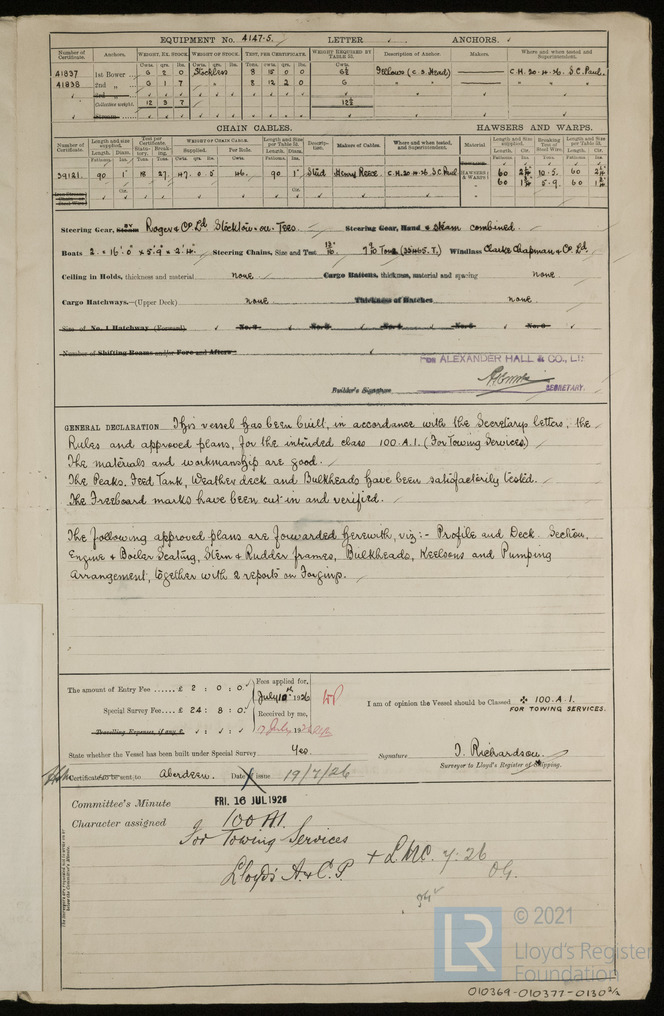 EQUIPMENT No. 4147.5. LETTER ANCHORS.
Number of Certificate. Anchors. WEIGHT, EX. STOCK. WEIGHT OF STOCK. TEST, PER CERTIFICATE. WEIGHT REQUIRED BY TABLE 31. Description of Anchor. Makers. Where and when tested and Superintendent.
Cwts. qrs. lbs. Cwts. qrs. lbs. Tons. Cwts. qrs. lbs. Cwts.
41837 1st Bower 6 2 0 Stockless 8 15 0 0 6½ Fellows (C.S. Head) C.H. 20.4.26. S.C. Paul.
41838 2nd „ 6 1 7 „ 8 12 2 0 6 „ „ „ „
Collective weight. 12 3 7 12½
CHAIN CABLES. HAWSERS AND WARPS.
Number of Certificate. Length and size supplied. Test per Certificate. WEIGHT OF CHAIN CABLE. Length and Size per Table 31. Description. Makers of Cables. Where and when tested, and Superintendent. Material Length and Size supplied. Breaking Test of Steel Wire. Length and Size per Table 31.
39121. 90 1" 18 27. 47. 0 5 46. 90 1" Stud Henry Reece. C.H. 20.4.26 S.C. Paul HAWSERS & WARPS 60 2¼ 10.5. 60 2¼
60 1¾ 5.9. 60 1¾
Steering Gear, Steam BY Roger & Co Ld Stockton-on-Tees. Steering Gear, Hand & Steam combined.
Boats 2. = 16'.0" × 5'.9" × 2'.4" Steering Chains, Size and Test Windlass Clarke Chapman & Co Ld.
Ceiling in Holds, thickness and material none Cargo Battens, thickness, material and spacing none
Cargo Hatchways.—(Upper Deck) none Thickness of Hatches none.
Size of No. 1 Hatchway (Forward) No. 2 No. 3 No. 4 No. 5 No. 6
Number of Shifting Beams and/or Fore and Afters
FOR ALEXANDER HALL & CO., LD.
Builder's Signature SECRETARY.
GENERAL DECLARATION This vessel has been built, in accordance with the Secretarys letters, the
Rules and approved plans, for the intended class 100.A.1. (For Towing Services)
The materials and workmanship are good.
The Peaks, Feed Tank, Weather deck and Bulkheads have been satisfactorily tested.
The Freeboard marks have been cut in and verified.
The following approved plans are forwarded herewith, viz:- Profile and Deck. Section,
Engine & Boiler Seating, Stern & Rudder frames, Bulkheads, Keelsons and Pumping
Arrangement, together with 2 reports on Forgings.
The amount of Entry Fee ...... £ 2 : 0 : 0 : Fees applied for,
July 10th 1926
Special Survey Fee ...... £ 24 : 8 : 0 : Received by me,
Travelling Expenses, if any £
I am of opinion the Vessel should be Classed ✠ 100.A.1.
FOR TOWING SERVICES.
State whether the Vessel has been built under Special Survey Yes.
Signature J. Richardson.
Surveyor to Lloyd's Register of Shipping.
Certificate to be sent to Aberdeen. Date of issue 19/7/26
Committee's Minute FRI. 16 JUL 1926
Character assigned 100A1.
For Towing Services
Lloyd's A & C.P. + LMC. 7.26
© 2021
LR Lloyd's Register
Foundation
010369-010377-0130 2/2